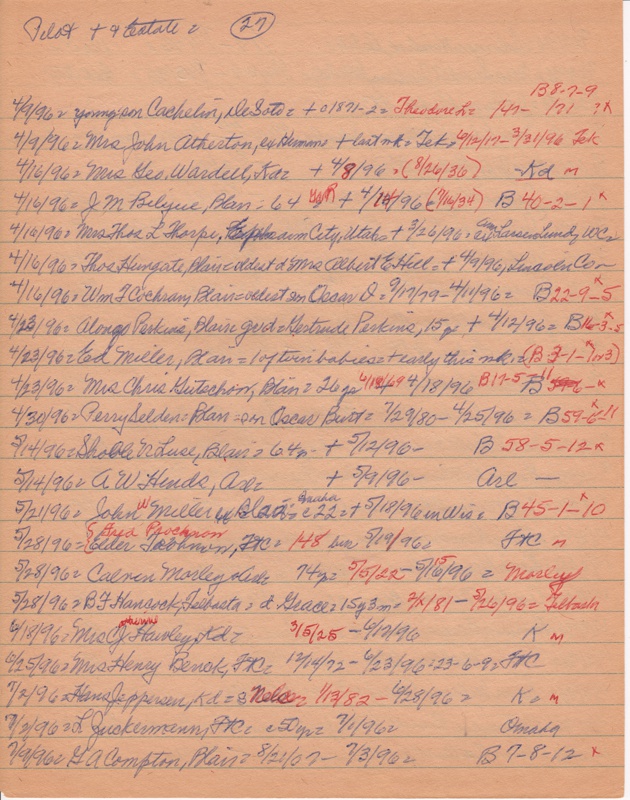 Pilot + & Estate = 27
B 8-7-9
4/9/96 = young son Cachelin, DeSoto = + 01871-2 = Theodore L = 147- 171 ?x
4/9/96 = Mrs John Atherton, ex Hermans + last wk = Tek = 6/12/17 - 3/31/96 Tek
4/16/96 = Mrs Geo. Wardell, Kd = + 4/8/96 = (8/26/36) Kd m
4/16/96 = J M Bilyue, Blair = 64 + 4/14/96 = (7/16/34) B 40-2-1 x
4/16/96 = Mrs Thos L Thorpe, City, Utah + 3/26/96 = Larsen Lundy WC =
4/16/96 = Thos Hungate, Blair = oldest d Mrs Albert E Hill = + 4/9/96, Lincoln Co
4/16/96 = Wm F Cochran, Blair = oldest son Oscar O = 9/17/79 - 4/11/96 = B 22-9-5 x
4/23/96 = Alonzo Perkins, Blair gvd = Gertrude Perkins, 15 yr + 4/12/96 = B 16-3-5 x
4/23/96 = Ed Miller, Blair = 1 of twin babies = + early this wk = (B 3-1-7 or 3) x
4/23/96 = Mrs Chris Gutschow, Blair = 26 yr 6/18/69 4/18/96 B 17-5-11 x
4/30/96 = Perry Selden = Blair = son Oscar Butt = 7/29/80 - 4/25/96 = B 59-6-11 x
5/14/96 = Shoble V Luse, Blair = 64 yr - + 5/12/96 - B 58-5-12 x
5/14/96 = A W Hinds, Arl = + 5/9/96 - Arl —
5/21/96 = John W Miller ex Blair = Omaha c 22 = + 5/18/96 in Wis = B 45-1-10 x
5/28/96 = Elder FtC = 148 bur 5/19/96 = FtC m
5/28/96 = Calvin Morley 74 yr = 5/5/22 - 5/16/96 15 = Morley
5/28/96 = B F Hancock, Telbasta = d Grace = 15y3m = 2/x/81 - 5/26/96 = Telbasta
6/18/96 = Mrs J Hawley, Kd = 3/5/25 - 6/17/96 K m
6/25/96 = Mrs Henry Benck, FtC = 12/14/72 - 6/23/96 = 23-6-9 = FtC
7/2/96 = Hans Jeppersen, Kd = s Nels = 1/13/82 - 6/28/96 = K = m
7/2/96 = L Juskermann, FtC = c 50 yr = 7/1/96 = Omaha
7/9/96 = G A Compton, Blair = 8/21/07 - 7/3/96 = B 7-8-12 x